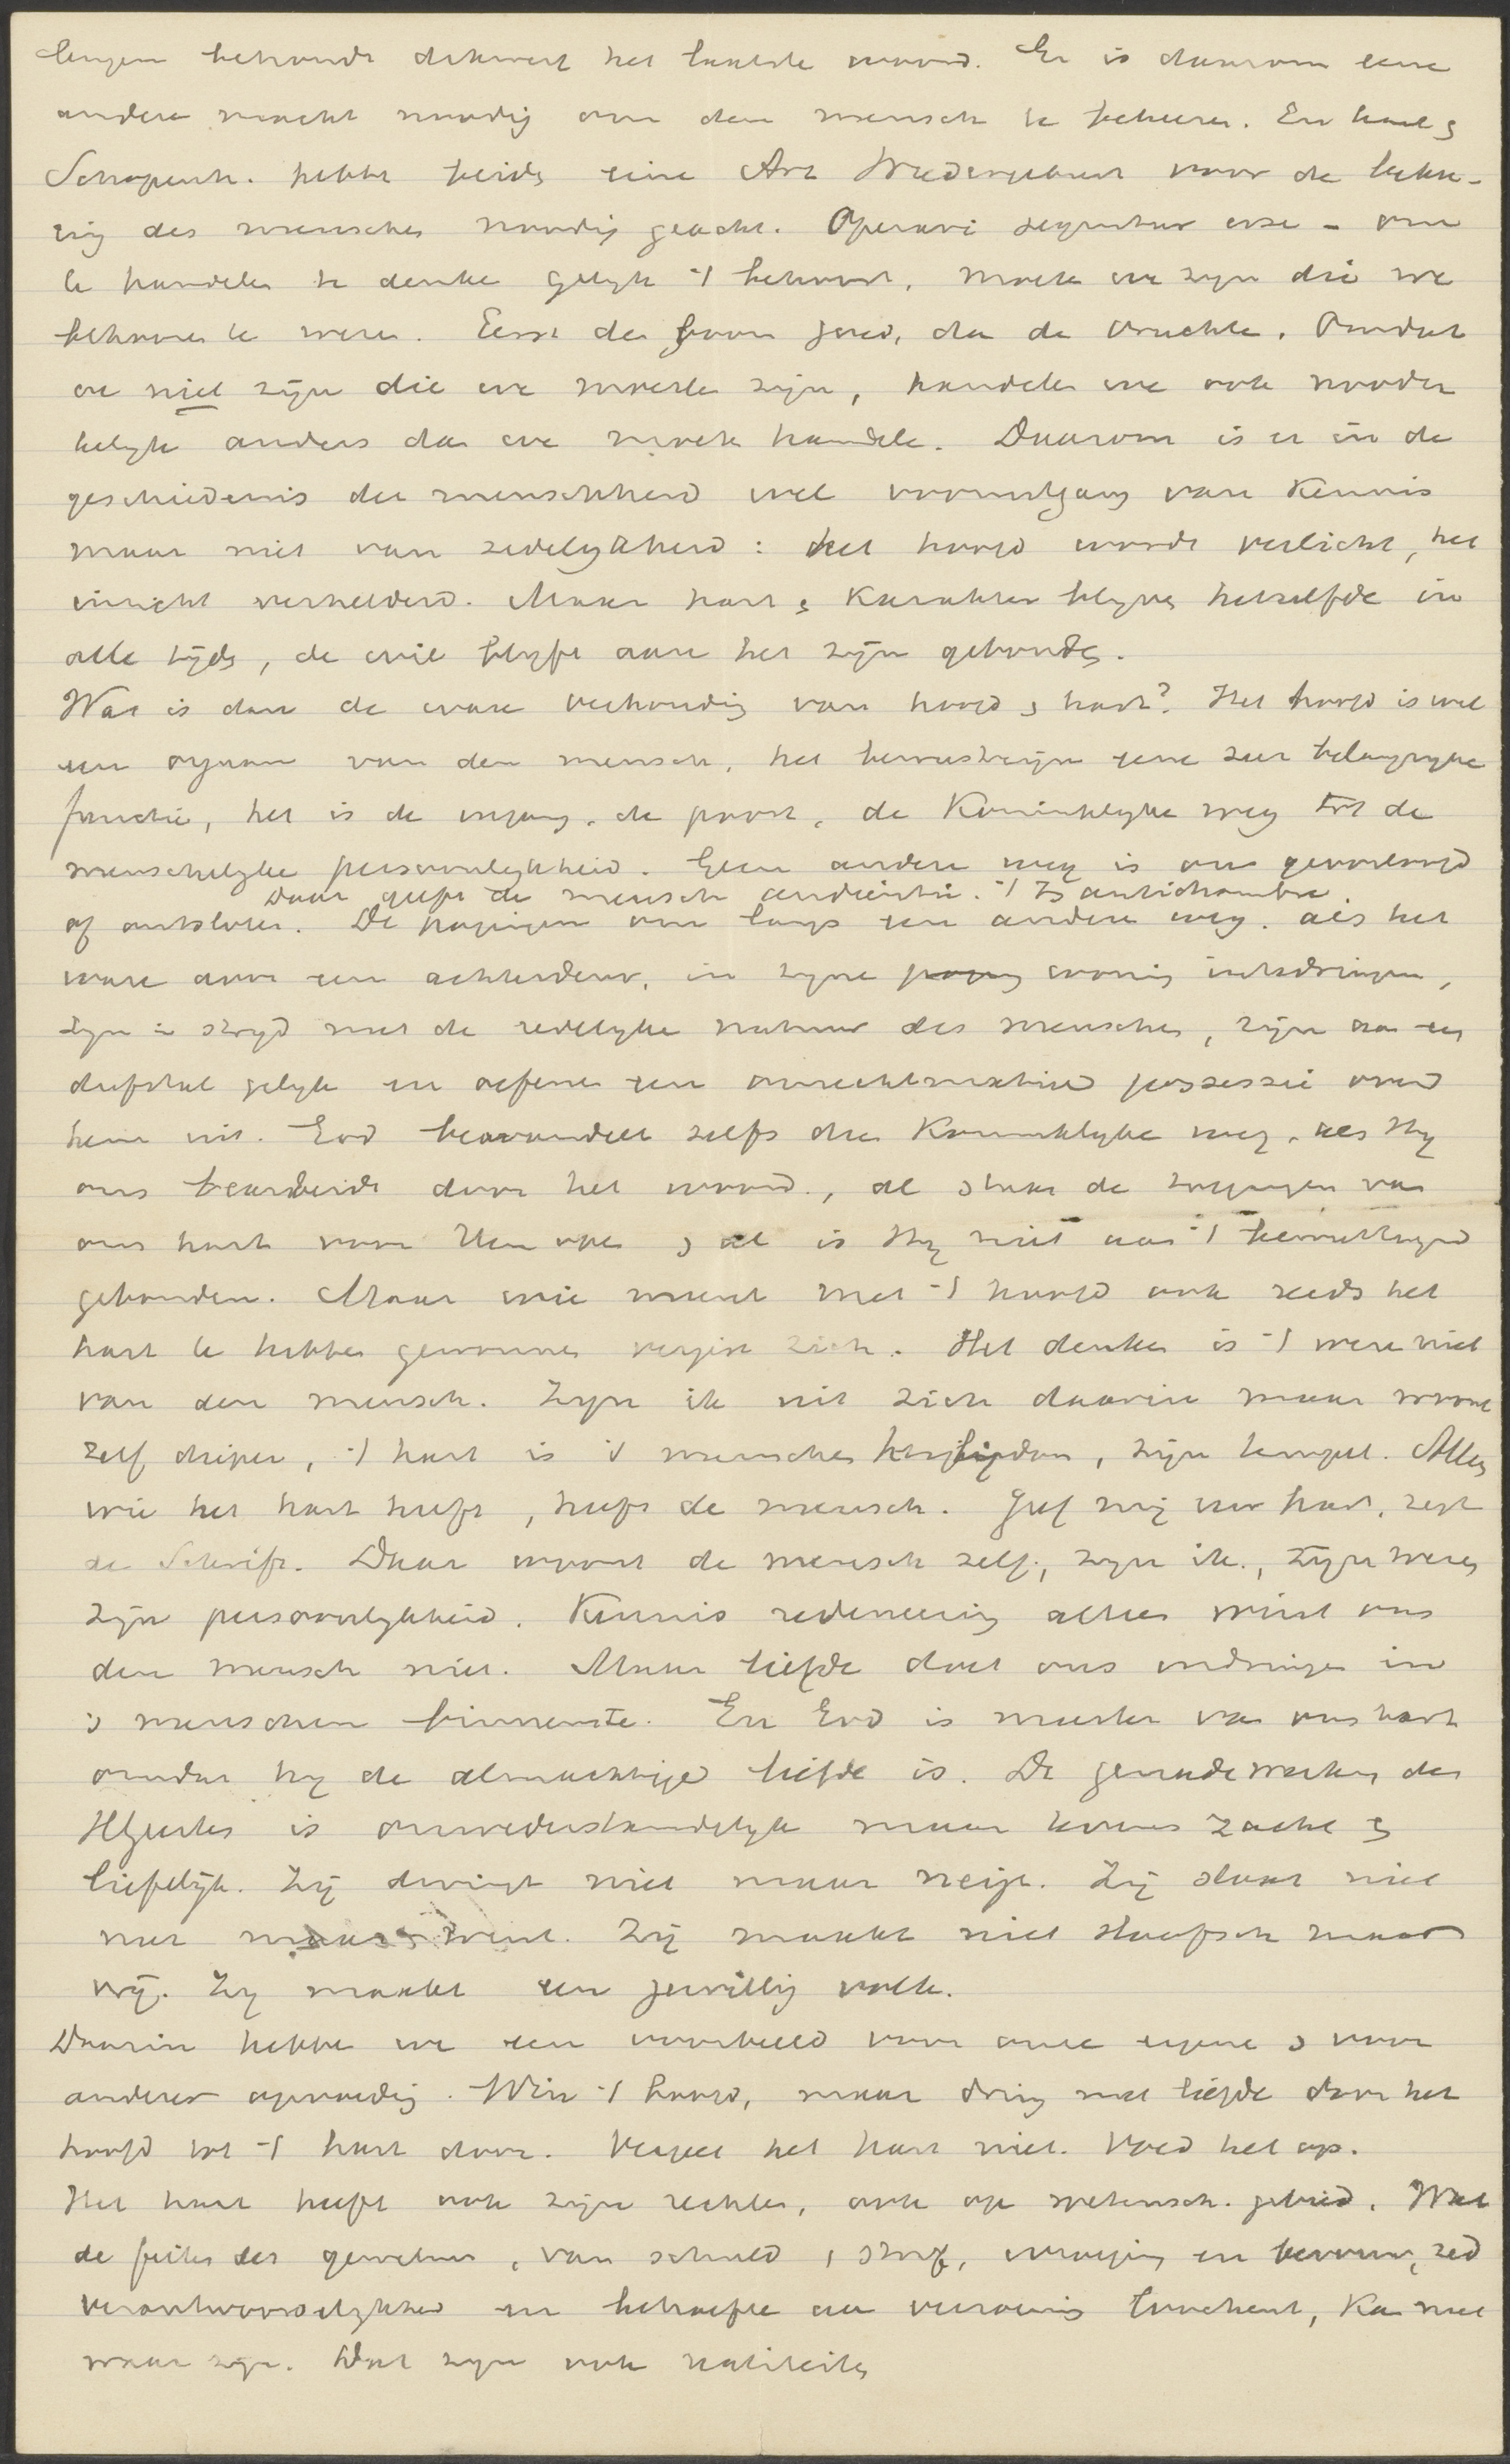 lingen behoudt dikwerf het laatste woord. Er is daarom eene
andere macht noodig om den mensch te bekeeren. En Kant &
Schopenh. hebben beide eene Art Wiedergeburt voor de beke-
ring des menschen noodig geacht. Operari sequitur esse - om
te handelen te denken gelijk 't behoort, moeten we zijn die we
behooren te wezen. Eerst de boom goed, dan de vruchten. Omdat
we niet zijn die we moesten zijn, handelen we ook noodza
kelijk anders dan we moeten handelen. Daarom is er in de
geschiedenis der menschheid wel vooruitgang van kennis
maar niet van zedelijkheid: het hoofd wordt verlicht, het
inzicht verhelderd. Maar hart & karakter blijven hetzelfde in
alle tijden, de wil blijft aan het zijn gebonden.
Wat is dan de ware verhouding van hoofd & hart? Het hoofd is wel
een orgaan van den mensch, het bewustzijn eene zeer belangrijke
functie, het is de ingang, de poort, de Koninklijke weg tot de
menschelijke persoonlijkheid. Geen andere weg is ons geoorloofd
Daar geeft de mensch audientie. 't Is antichambre.
of ontsloten. De pogingen om langs een anderen weg, als het
ware door een achterdeur, in zijne woning in te dringen,
zijn in strijd met de redelijke natuur des menschen, zijn aan een
diefstal gelijk en oefenen een onrechtmatige possessie over
hem uit. God bewandelt zelfs dien Koninklijke weg, als Hij
ons bearbeidt door het woord, al staan de toegangen van
ons hart voor Hem open & al is Hij niet aan 't bewustzijn
gebonden. Maar wie meent met 't hoofd ook reeds het
hart te hebben gewonnen vergist zich. Het denken is 't wezen niet
van den mensch. Zijn ik uit zich daarin maar woont
zelf dieper, 't hart is 's menschen heiligdom, zijn tempel. Alleen
wie het hart heeft, heeft de mensch. Geef mij uw hart, zegt
de Schrift. Daar woont de mensch zelf, zijn ik, zijn wezen
zijn persoonlijkheid. Kennis redeneering alleen wint ons
den mensch niet. Maar liefde doet ons indringen in
's menschen binnenste. En God is meester van ons hart
omdat hij de almachtige liefde is. De genadewerking des
HGeestes is onwederstandelijk maar tevens zacht &
liefelijk. Zij dwingt niet maar neigt. Zij slaat niet
neer maar wint. Zij maakt niet slaafsch maar
vrij. Zij maakt een gewillig volk.
Daarin hebben we een voorbeeld voor onze eigene & voor
anderer opvoeding. Win 't hoofd, maar dring met liefde door het
hoofd tot 't hart door. Vergeet het hart niet. Voed het op.
Het hart heeft ook zijne rechten, ook op wetensch. gebied. Wat
de feiten des gewetens, van schuld, straf, wroeging en berouw, zed
verantwoordelijkheid en behoefte aan verzoening loochent, kan niet
waar zijn. Dat zijn ook realiteiten